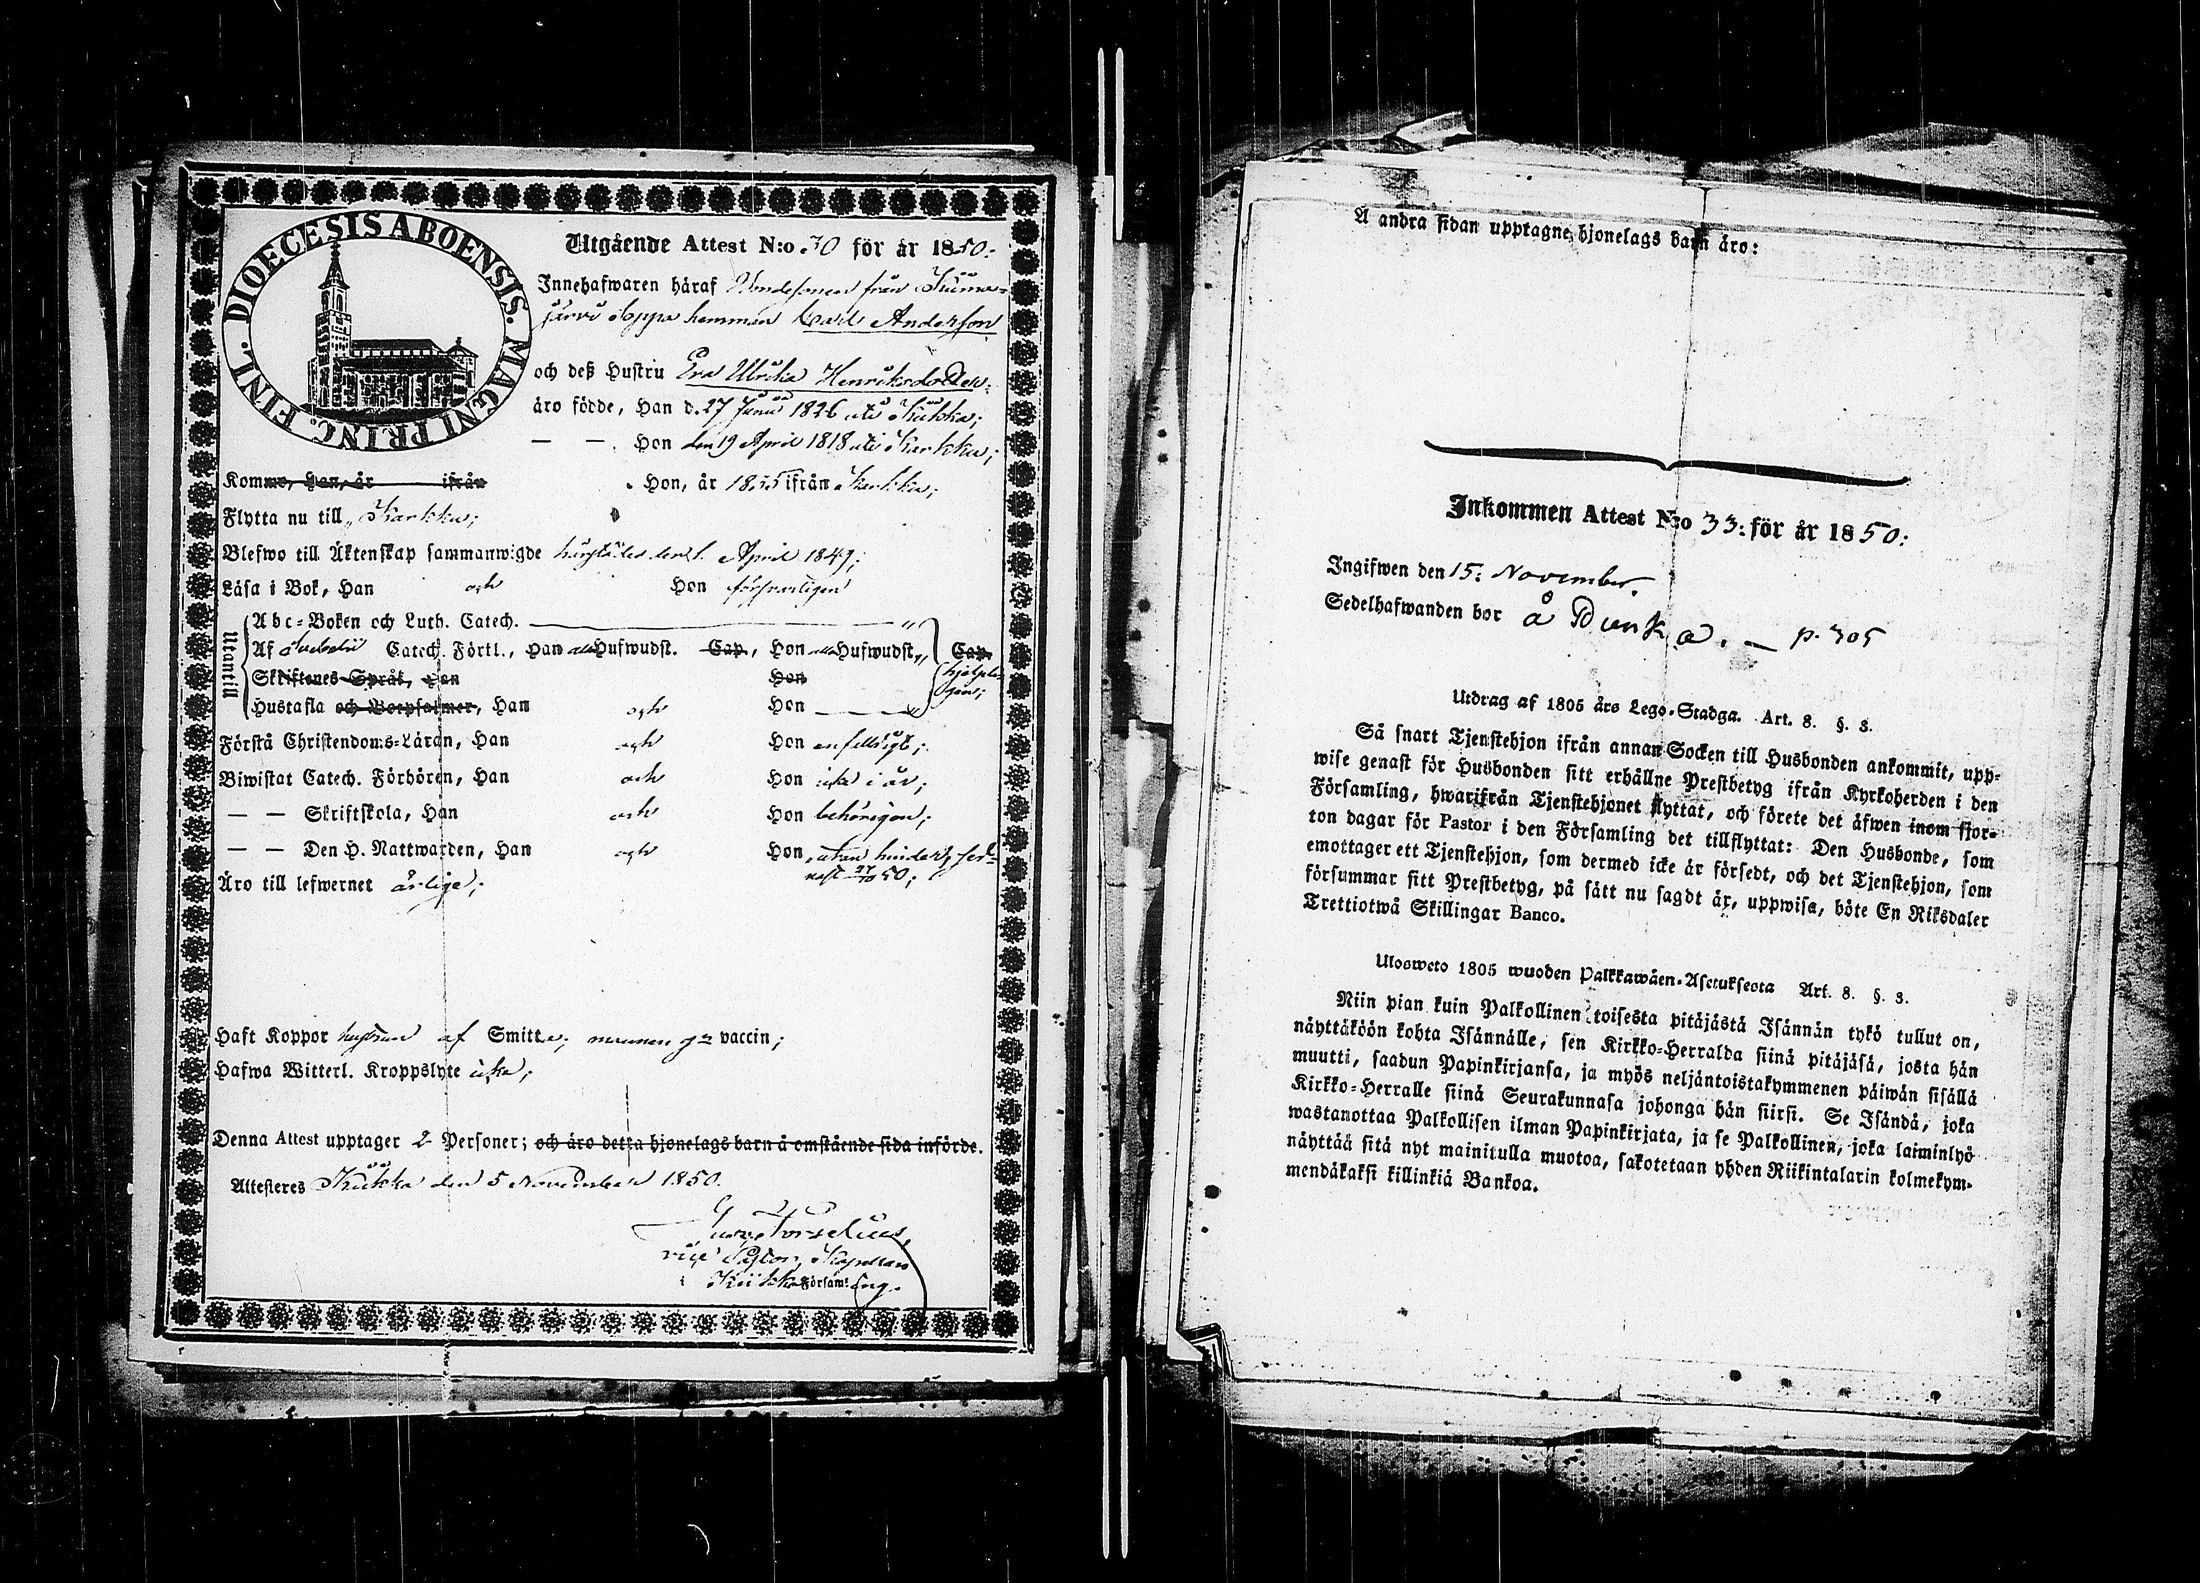 DIOECESIS ABOENSIS. MAGNI PRINC. FINL.
Utgående Attest N:o 30 för år 1850.
Innehafwaren häraf från Kiima=
järvi Soppa hemman Carl Anderson
och deß Hustru Eva Ulrika Henriksdotter
äro födde, Han d. 27 Junii 1826 uti Kiikka;
— — . Hon den 19 April 1818 uti Karkku;
Kommo, Han, år ifrån . Hon, år 1835 ifrån Karkku;
Flytta nu till Karkku;
Blefwo till Äktenskap sammanwigde härstädes den 1. April 1849;
Läsa i Bok, Han och Hon försvarligen
Utantill
Abc=Boken och Luth. Catech. — „
Af Svebelii Catech. Förkl., Han alla Hufwudst. Cap., Hon alla Hufwudst., Cap.
Skriftenes Språk, Han Hon hjelpli-
gen;
Hustafla och Botpsalmer, Han och Hon — „
Förstå Christendoms=Läran, Han och Hon enfelligt;
Biwistat Catech. Förhören, Han och Hon icke i år;
— — Skriftskola, Han och Hon behörigen;
— — Den H. Nattwarden, Han och Hon utan hinder, sed-
nast 27/10 50;
Äro till lefwernet ärlige;
Haft Koppor af Smitta; vaccin;
Hafwa Witterl. Kroppslyte icke;
Denna Attest upptager 2 Personer; och äro detta hjonelags barn å omstående sida införde.
Attesteras Kiikka den 5 November 1850.
Forselius,
vice Pastor, Kapellan
i Kiikka Församling.
Å andra sidan upptagne hjonelags barn äro:
Inkommen Attest N:o 33: för år 1850:
Ingifwen den 15: November.
Sedelhafwanden bor å Dunka. — p. 305
Utdrag af 1805 års Lego=Stadga. Art. 8. §. 3.
Så snart Tjenstehjon ifrån annan Socken till Husbonden ankommit, upp=
wise genast för Husbonden sitt erhållne Prestbetyg ifrån Kyrkoherden i den
Församling, hwarifrån Tjenstehjonet flyttat, och förete det äfwen inom fjor=
ton dagar för Pastor i den Församling det tillflyttat: Den Husbonde, som
emottager ett Tjenstehjon, som dermed icke är försedt, och det Tjenstehjon, som
försummar sitt Prestbetyg, på sätt nu sagdt är, uppwisa, böte En Riksdaler
Trettiotwå Skillingar Banco.
Ulosweto 1805 wuoden Palkkawäen=Asetuksesta Art. 8. §. 3.
Niin pian kuin Palkollinen toisesta pitäjästä Isännän tykö tullut on,
näyttäköön kohta Isännälle, sen Kirkko=Herralda siinä pitäjäsä, josta hän
muutti, saadun Papinkirjansa, ja myös neljäntoistakymmenen päiwän sisällä
Kirkko=Herralle siinä Seurakunnasa johonga hän siirsi. Se Isändä, joka
wastanottaa Palkollisen ilman Papinkirjata, ja se Palkollinen, joka laiminlyö
näyttää sitä nyt mainitulla muotoa, sakotetaan yhden Riikintalarin kolmekym=
mendäkaksi killinkiä Bankoa.